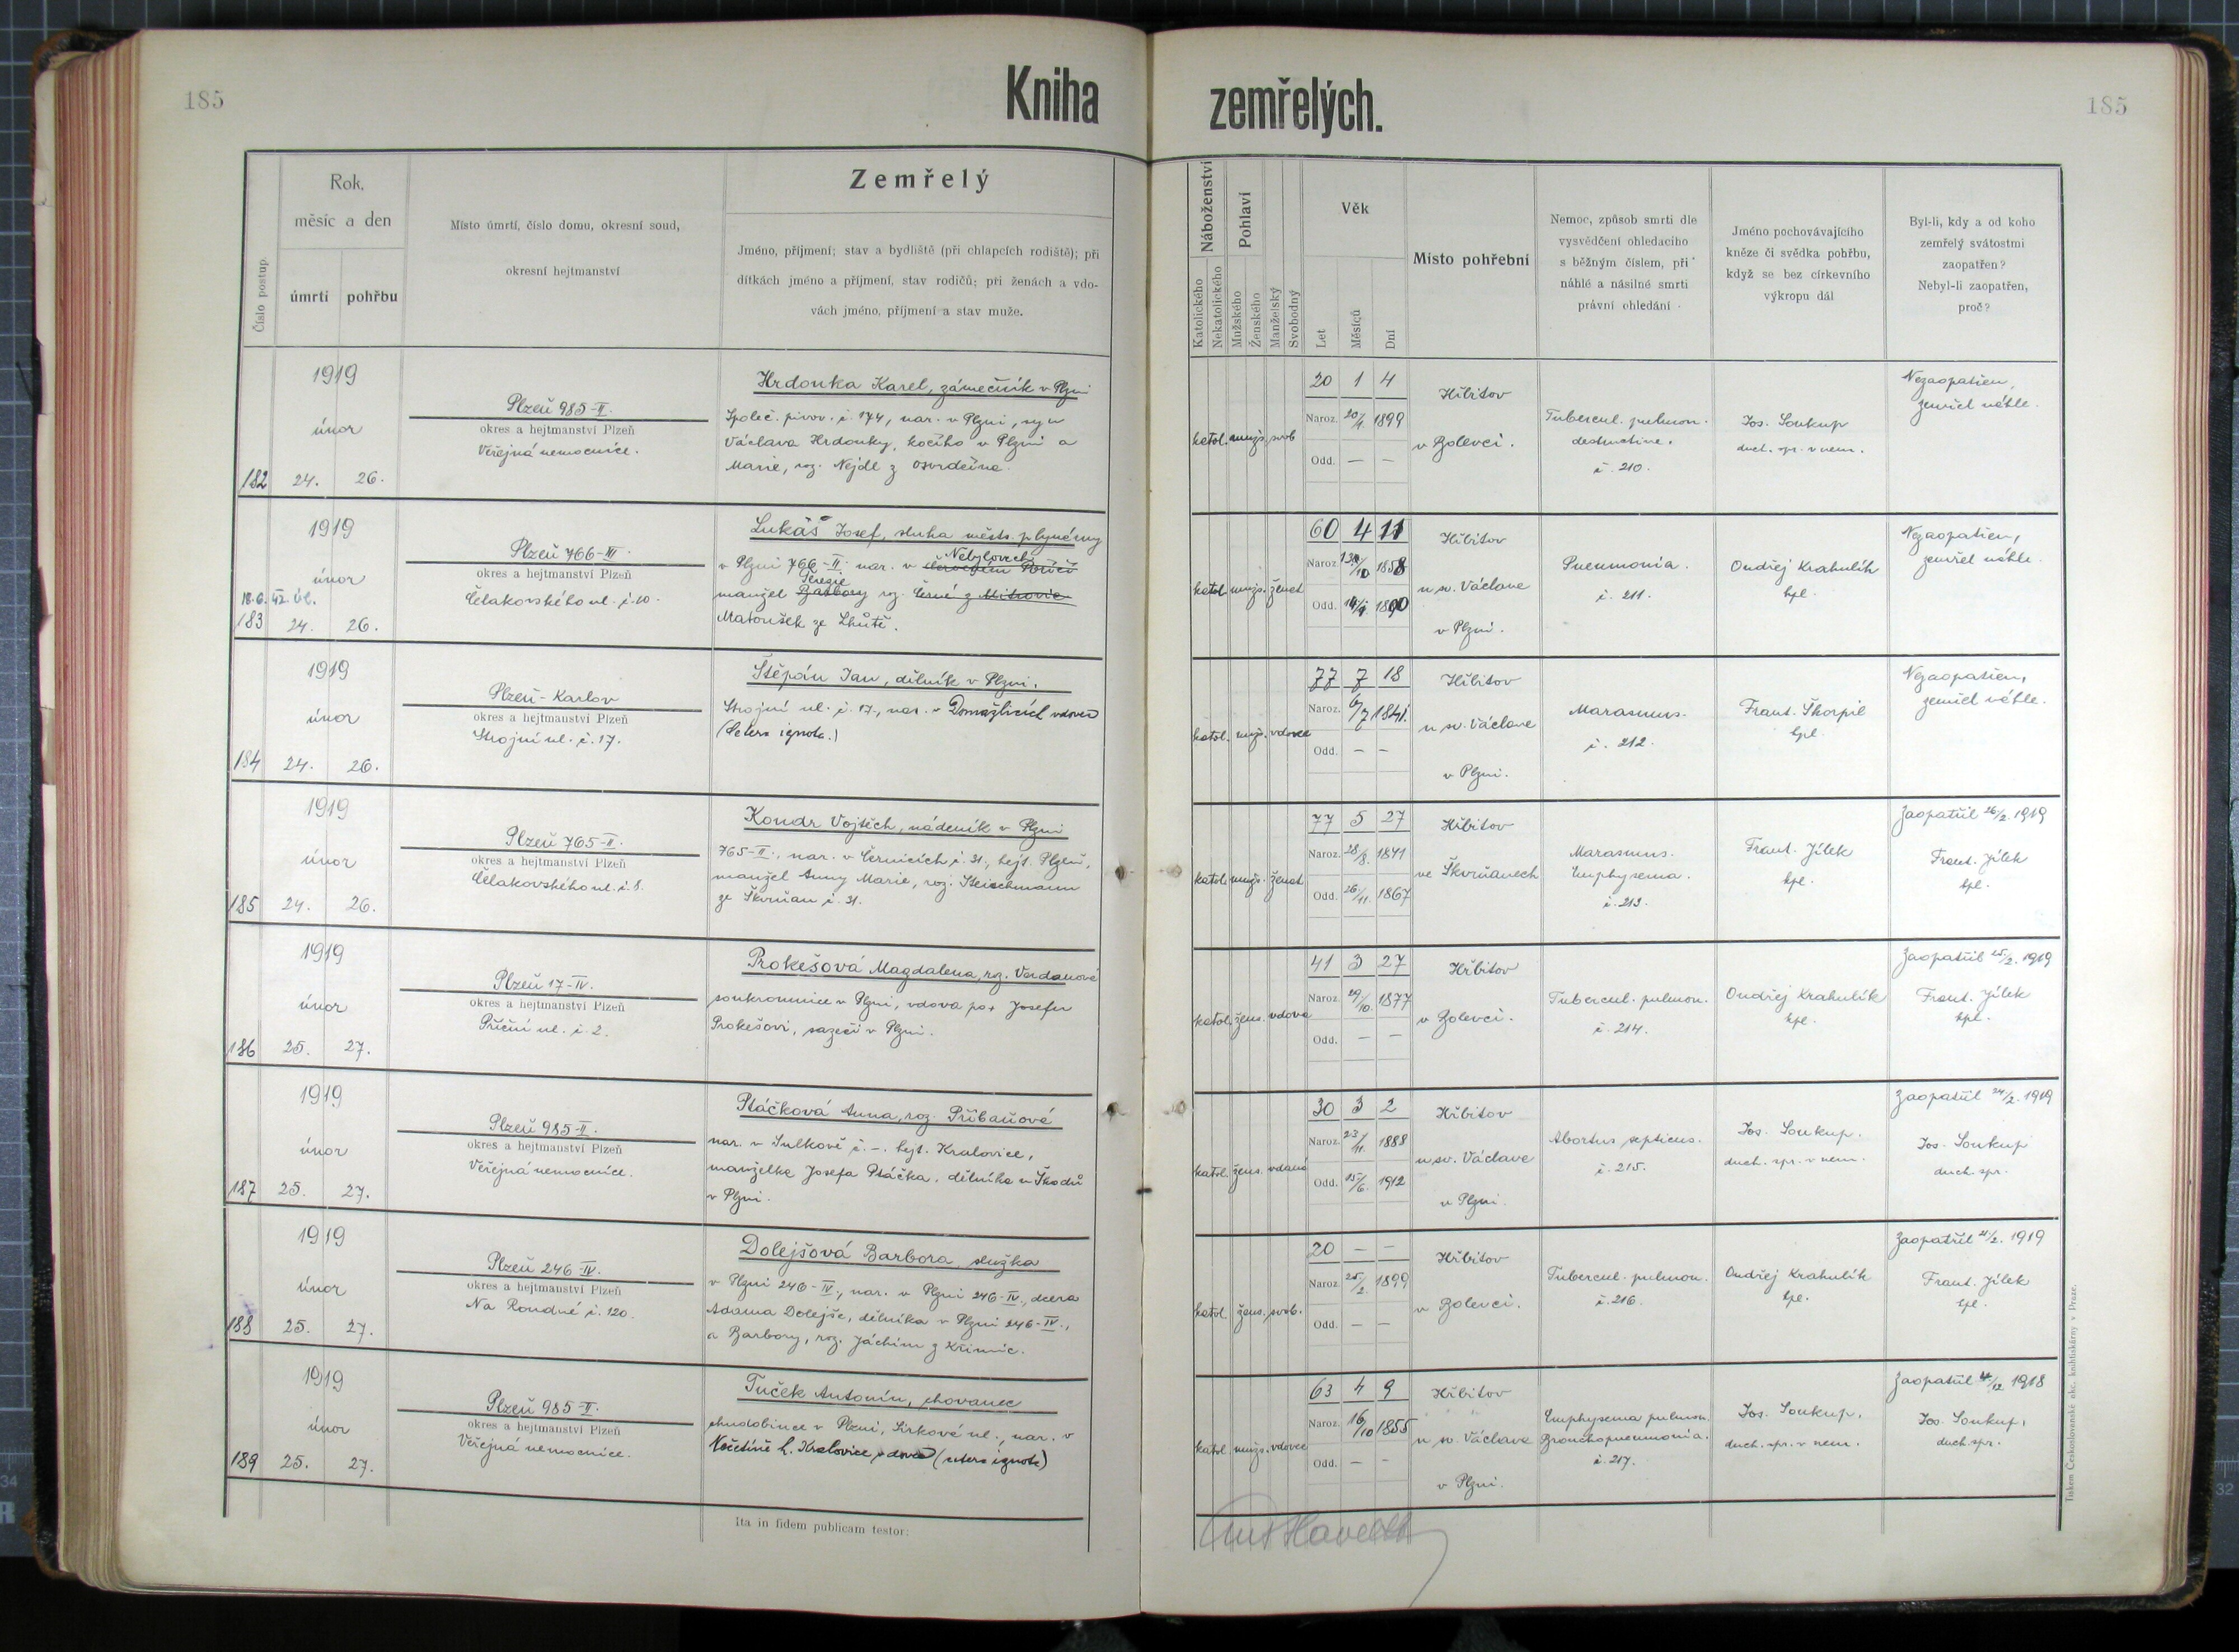 185
Kniha zemřelých.
185
Číslo postup.
Rok,
měsíc a den
úmrtí
pohřbu
Místo úmrtí, číslo domu, okresní soud,
okresní hejtmanství
Zemřelý
Jméno, příjmení; stav a bydliště (při chlapcích rodiště); při
dítkách jméno a příjmení, stav rodičů; při ženách a vdo-
vách jméno, příjmení a stav muže.
Náboženství
Katolického
Nekatolického
Pohlaví
Mužského
Ženského
Manželský
Svobodný
Věk
Let
Měsíců
Dní
Místo pohřební
Nemoc, způsob smrti dle
vysvědčení ohledacího
s běžným číslem, při
náhlé a násilné smrti
právní ohledání
Jméno pochovávajícího
kněze či svědka pohřbu,
když se bez církevního
výkropu dál
Byl-li, kdy a od koho
zemřelý svátostmi
zaopatřen?
Nebyl-li zaopatřen,
proč?
1919
únor
182 24. 26.
Plzeň 985-II.
okres a hejtmanství Plzeň
Veřejná nemocnice.
Hrdonka Karel, zámečník v Plzni
Společ. pivov. č. 174, nar. v Plzni, syn
Václava Hrdonky, kočího v Plzni a
Marie, roz. Nejdl z Osvračína.
katol. mužs. svob
20 1 4
Naroz. 20/1. 1899
Odd. — —
Hřbitov
v Bolevci.
Tubercul. pulmon.
destructiva.
č. 210.
Jos. Soukup
duch. spr. v nem.
Nezaopatřen,
zemřel náhle.
1919
únor
18.6.42. úl.
183 24. 26.
Plzeň 766-III.
okres a hejtmanství Plzeň
Čelakovského ul. č. 10.
Lukáš Josef, sluha městs. plynárny
Nebylovech
v Plzni 766-II. nar. v Červeném Poříčí
Terezie
manžel Barbory roz. Černé z Mitrovic
Matoušek ze Lhůtě.
katol. mužs. ženat
60 4 11
Naroz. 13/10 1858
Odd. 1890
Hřbitov
u sv. Václava
v Plzni.
Pneumonia.
č. 211.
Ondřej Krahulík
kpl.
Nezaopatřen,
zemřel náhle.
1919
únor
184 24. 26.
Plzeň-Karlov
okres a hejtmanství Plzeň
Strojní ul. č. 17.
Štěpán Jan, dělník v Plzni.
Strojní ul. č. 17., nar. v Domažlicích vdovec
(cetera ignota.)
katol. mužs. vdovec
77 7 18
Naroz. 6/7 1841.
Odd. — —
Hřbitov
u sv. Václava
v Plzni.
Marasmus.
č. 212.
Frant. Škorpil
kpl.
Nezaopatřen,
zemřel náhle.
1919
únor
185 24. 26.
Plzeň 765-II.
okres a hejtmanství Plzeň
Čelakovského ul. č. 8.
Kondr Vojtěch, nádeník v Plzni
765-II., nar. v Černicích č. 31., hejt. Plzeň,
manžel Anny Marie, roz. Fleischmann
ze Škvrňan č. 31.
katol. mužs. ženat
77 5 27
Naroz. 28/8. 1841
Odd. 26./11. 1867
Hřbitov
ve Škvrňanech
Marasmus.
Emphysema.
č. 213.
Frant. Jílek
kpl.
Zaopatřil 26/2. 1919
Frant. Jílek
kpl.
1919
únor
186 25. 27.
Plzeň 17-IV.
okres a hejtmanství Plzeň
Příční ul. č. 2.
Prokešová Magdalena, roz. Vordanová
soukromnice v Plzni, vdova po + Josefu
Prokešovi, sazeči v Plzni.
katol. žens. vdova
41 3 27
Naroz. 29/10. 1877
Odd. — —
Hřbitov
v Bolevci.
Tubercul. pulmon.
č. 214.
Ondřej Krahulík
kpl.
Zaopatřil 25/2. 1919
Frant. Jílek
kpl.
1919
únor
187 25. 27.
Plzeň 985-II.
okres a hejtmanství Plzeň
Veřejná nemocnice.
Ptáčková Anna, roz. Přibaňová
nar. v Sulkově č. –. hejt. Kralovice,
manželka Josefa Ptáčka, dělníka u Škodů
v Plzni.
katol. žens. vdaná
30 3 2
Naroz. 23/11. 1888
Odd. 15/6. 1912
Hřbitov
u sv. Václava
v Plzni.
Abortus septicus.
č. 215.
Jos. Soukup.
duch. spr. v nem.
Zaopatřil 24/2. 1919
Jos. Soukup
duch. spr.
1919
únor
188 25. 27.
Plzeň 246-IV.
okres a hejtmanství Plzeň
Na Roudné č. 120.
Dolejšová Barbora, služka
v Plzni 246-IV., nar. v Plzni 246-IV., dcera
Adama Dolejše, dělníka v Plzni 246-IV.,
a Barbory, roz. Jáchim z Křimic.
katol. žens. svob.
20 — —
Naroz. 25/2. 1899
Odd. — —
Hřbitov
v Bolevci.
Tubercul. pulmon.
č. 216.
Ondřej Krahulík
kpl.
Zaopatřil 21/2. 1919
Frant. Jílek
kpl.
1919
únor
189 25. 27.
Plzeň 985-II.
okres a hejtmanství Plzeň
Veřejná nemocnice.
Tuček Antonín, chovanec
chudobince v Plzni, Sirková ul., nar. v
Nečtině h. Kralovice, vdovec (cetera ignota)
katol. mužs. vdovec
63 4 9
Naroz. 16/10 1855
Odd. — —
Hřbitov
u sv. Václava
v Plzni.
Emphysema pulmon.
Bronchopneumonia.
č. 217.
Jos. Soukup.
duch. spr. v nem.
Zaopatřil 1918
Jos. Soukup,
duch. spr.
Ita in fidem publicam testor:
Tiskem Československé akc. knihtiskárny v Praze.